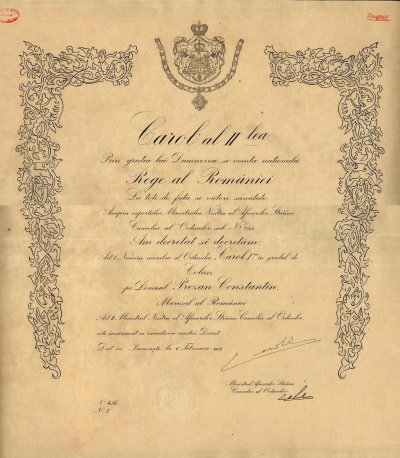 Carol al II lea
Prin gratia lui Dumnezeu si vointa nationala
Rege al României
La toti de fata si viitori sanatate.
Asupra raportului Ministrului Nostru al Afacerilor Straine
Cancelar al Ordinelor, sub No
Am decretat si decretam:
Art. I. Numim membru al Ordinului „Carol I" in gradul de
Colan
pe Domnul Prezan Constantin,
Maresal al României
Art. II. Ministrul Nostru al Afacerilor Straine Cancelar al Ordinelor,
este insarcinat cu executarea acestui Decret.
Dat in Bucuresti la 10 Februarie
Carol
Ministrul Afacerilor Straine
Cancelar al Ordinelor
No 416
No 1